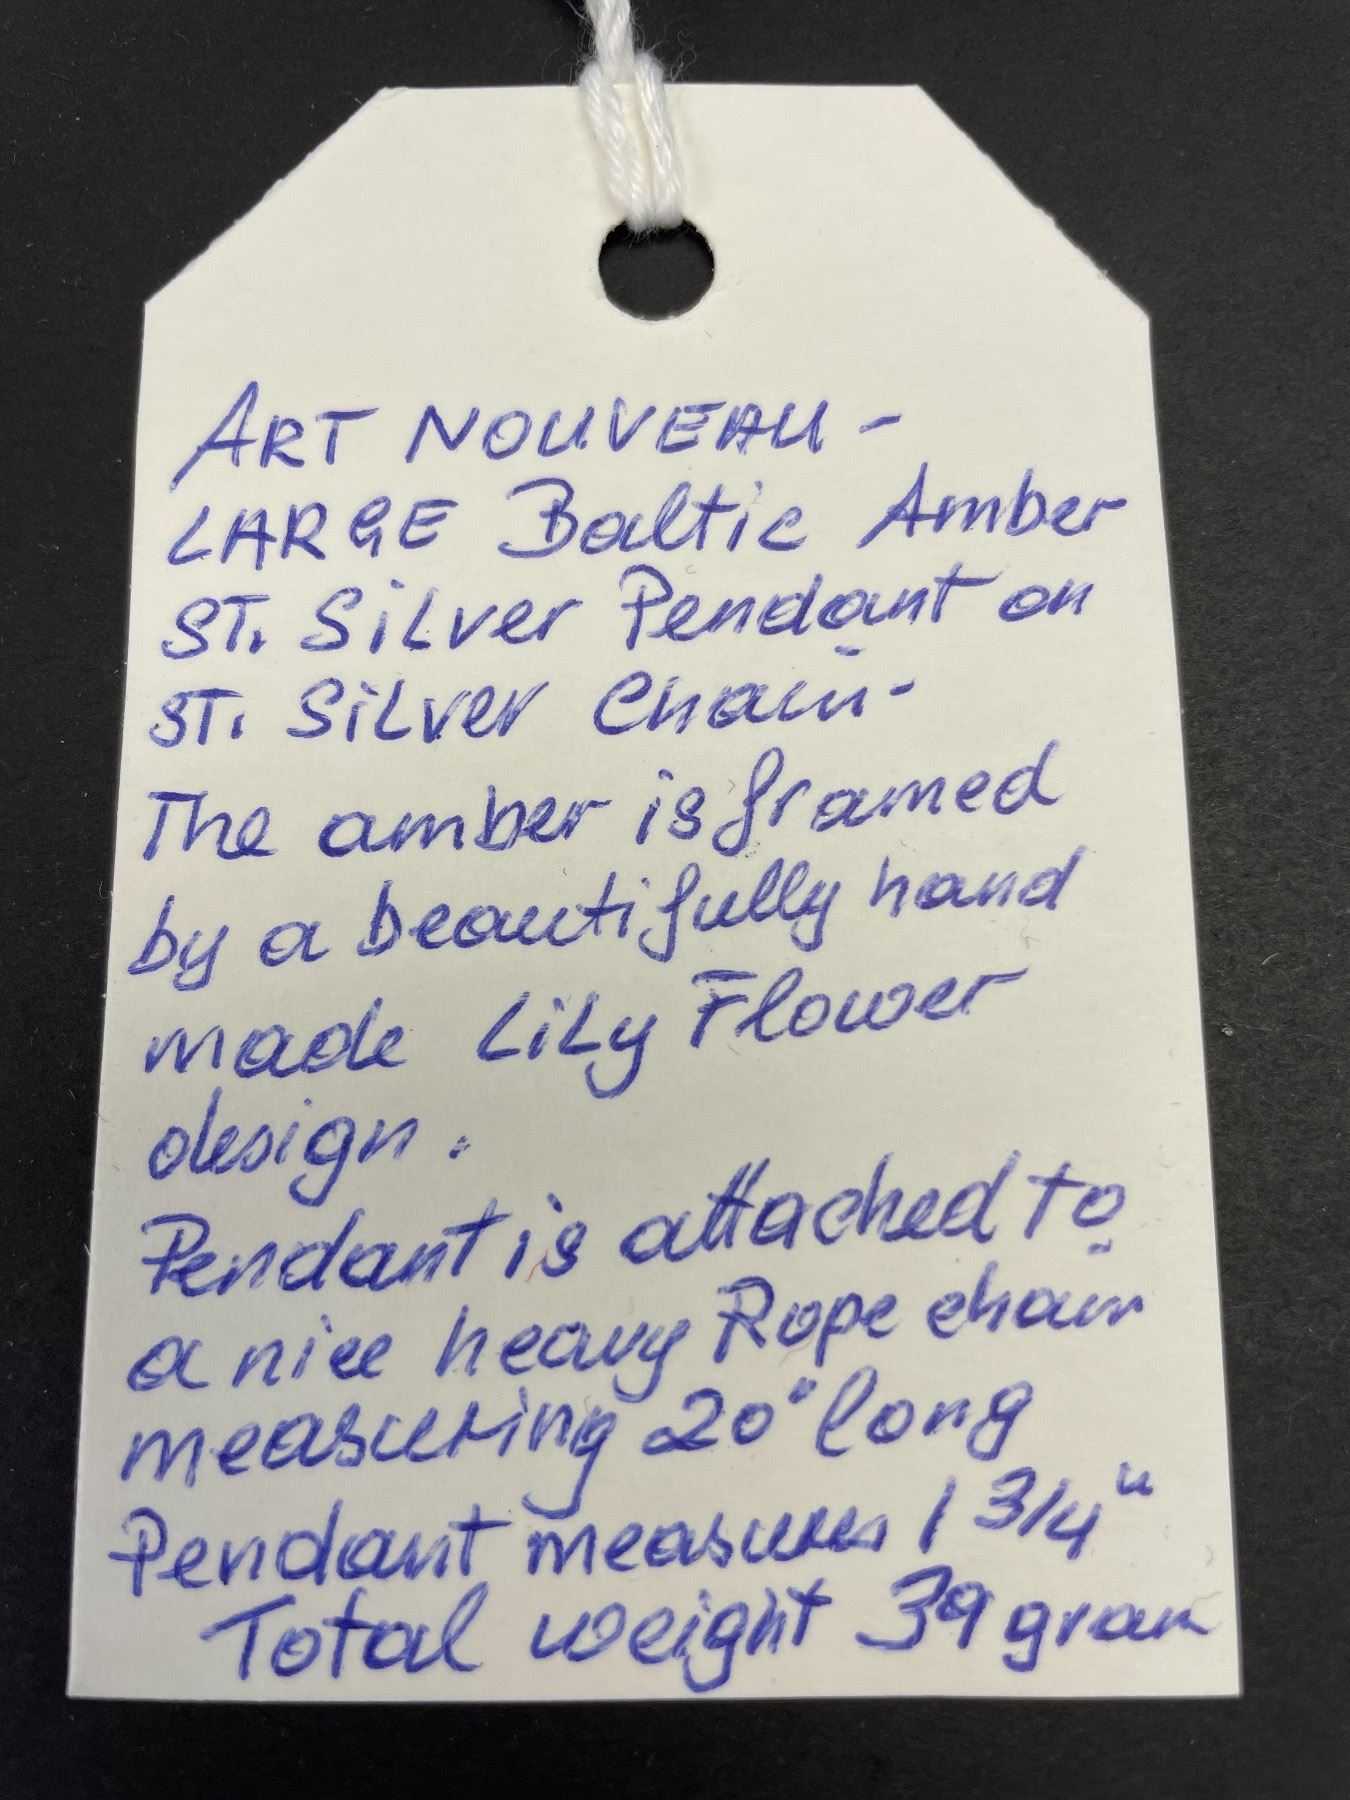 ART NOUVEAU -
LARGE Baltic Amber
ST. SiLver Pendant on
ST. SiLver Chain-
The amber is framed
by a beautifully hand
made LiLy Flower
design.
Pendant is attached to
a nice heavy Rope chain
measuring 20" long
Pendant measures 1 3/4"
Total weight 39 gram